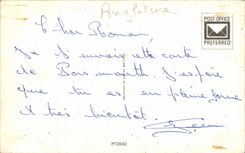 Angleterre
POST OFFICE
PREFERRED
Cher Roman,
Je t'envoie cette carte
de Bournmonth. J'espère
que tu es en pleine forme
A très bientôt.
PT2032